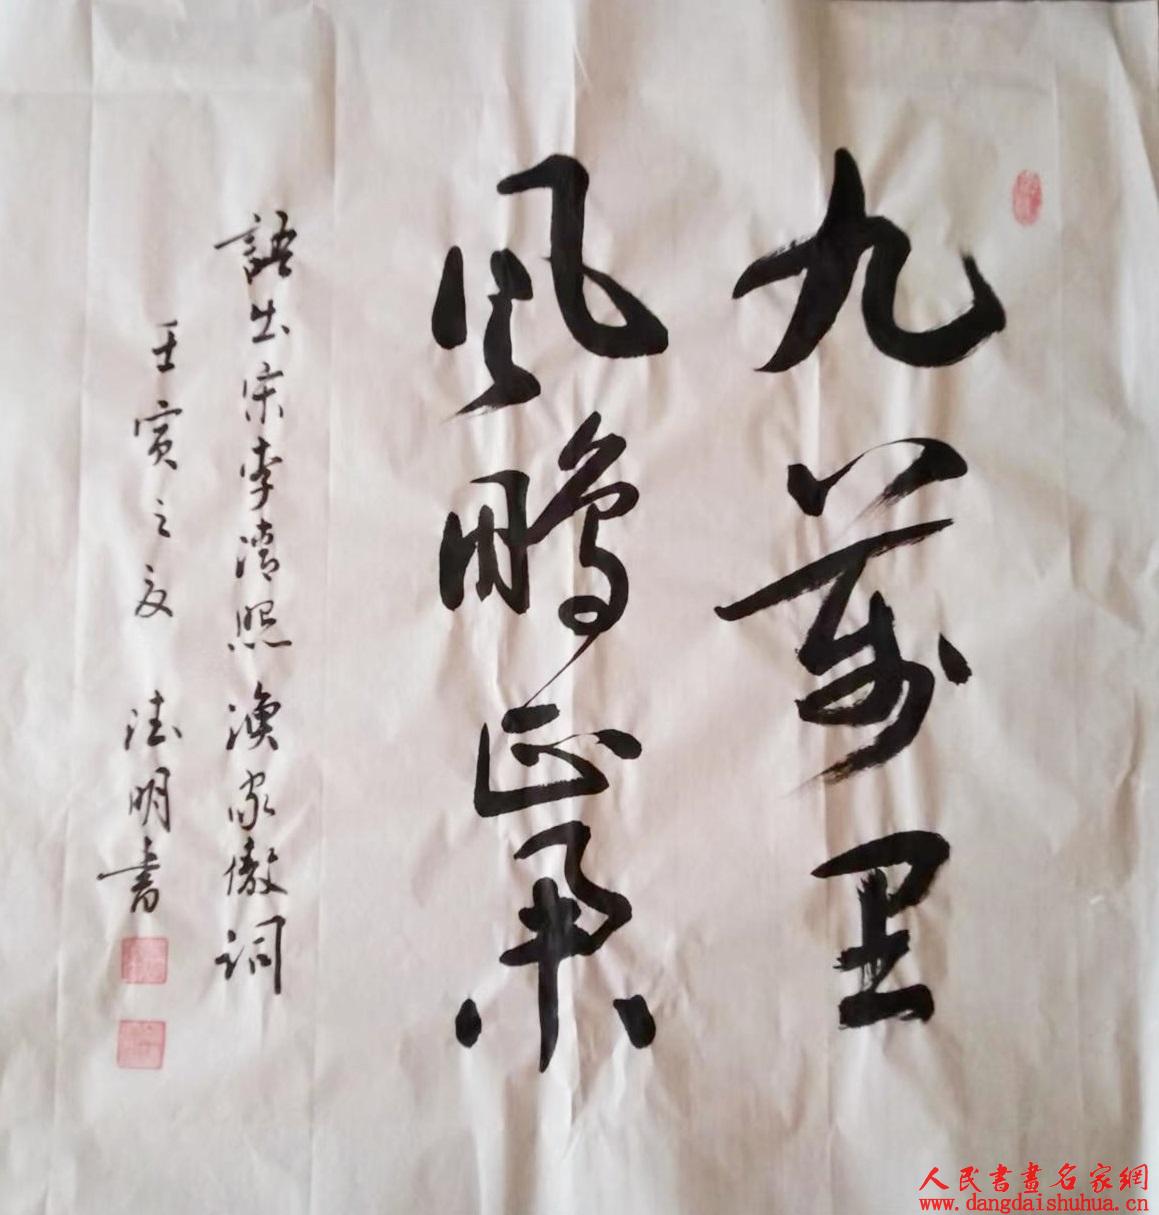 九萬里
風鵬正舉
語出宋李清照漁家傲詞
壬寅之夏 德明書
人民書畫名家網
www.dangdaishuhua.cn